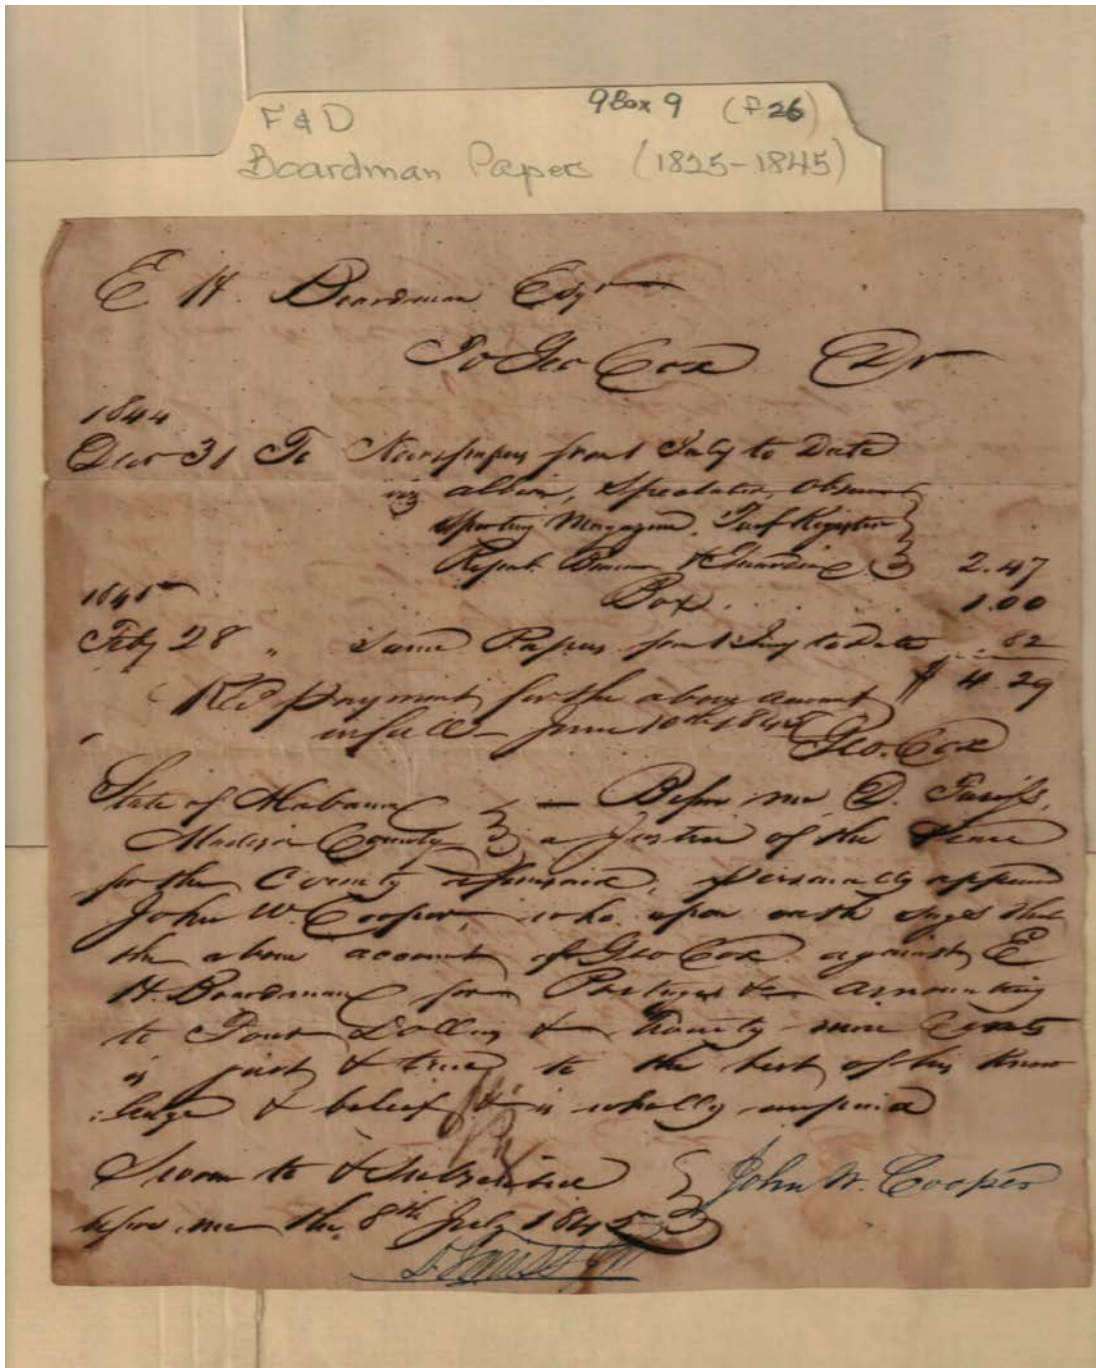 F & D 9Box 9 (f 26)
Boardman Papers (1825-1845)
E H. Boardman Esqr
To Geo Cox Dr
1844
Decr 31 To Newspapers from 1 July to Date
viz Albion, Spectator, Observer
Sporting Magazine, Turf Register
Repub. Banner & Guardian 2.47
Box 1.00
1845
Feby 28 " Same Papers from 1 Jany to Date .82
$ 4.29
Recd payment for the above amount
in full June 10th 1845
Geo. Cox
State of Alabama } Before me D.
Madison County } a Justice of the Peace
for the County aforesaid, personally appeared
John W. Cooper, who upon oath says that
the above account of Geo Cox against E
H. Boardman for Postages &c amounting
to Four Dollars & Twenty nine Cents
is just & true to the best of his know
:ledge & belief & is wholly unpaid
Sworn to & Subscribed } John W. Cooper
before me the 8th July 1845 }